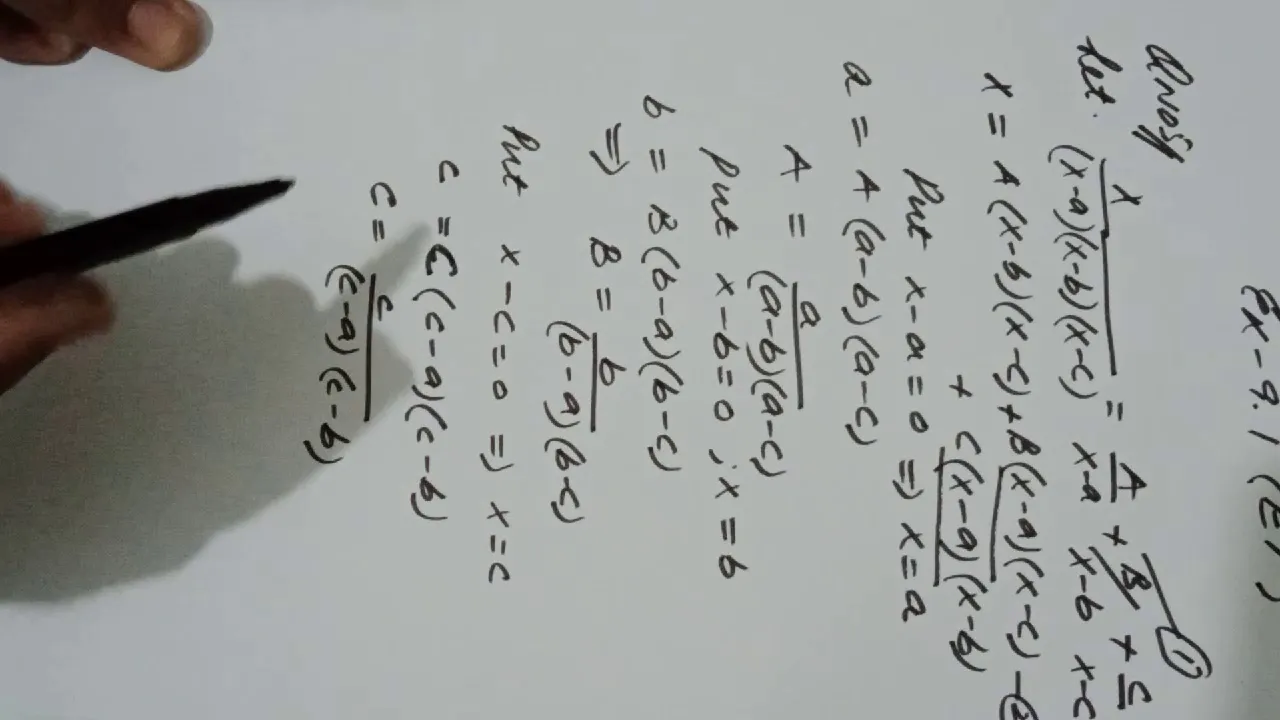 Ex - 9.1 (E1)
Qno5)
Let. x/((x-a)(x-b)(x-c)) = A/(x-a) + B/(x-b) + C/(x-c) ①
x = A(x-b)(x-c) + B(x-a)(x-c) - ②
+ C(x-a)(x-b)
Put x-a=0 ⇒ x=a
a = A(a-b)(a-c)
A = a/((a-b)(a-c))
Put x-b=0 ; x=b
b = B(b-a)(b-c)
⇒ B = b/((b-a)(b-c))
Put x-c=0 ⇒ x=c
c = C(c-a)(c-b)
C = c/((c-a)(c-b))